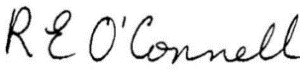 R E O'Connell